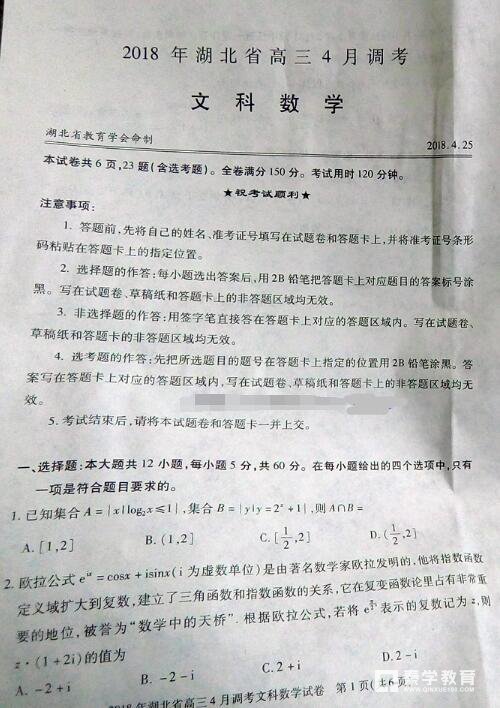 2018 年湖北省高三4月调考
文 科 数 学
湖北省教育学会命制 2018.4.25
本试卷共 6 页,23 题(含选考题)。全卷满分 150 分。考试用时 120 分钟。
★祝考试顺利★
注意事项:
1. 答题前,先将自己的姓名、准考证号填写在试题卷和答题卡上,并将准考证号条形
码粘贴在答题卡上的指定位置。
2. 选择题的作答:每小题选出答案后,用 2B 铅笔把答题卡上对应题目的答案标号涂
黑。写在试题卷、草稿纸和答题卡上的非答题区域均无效。
3. 非选择题的作答:用签字笔直接答在答题卡上对应的答题区域内。写在试题卷、
草稿纸和答题卡的非答题区域均无效。
4. 选考题的作答:先把所选题目的题号在答题卡上指定的位置用 2B 铅笔涂黑。答
案写在答题卡上对应的答题区域内,写在试题卷、草稿纸和答题卡上的非答题区域均无
效。
5. 考试结束后,请将本试题卷和答题卡一并上交。
一、选择题:本大题共 12 小题,每小题 5 分,共 60 分。在每小题给出的四个选项中,只有
一项是符合题目要求的。
1. 已知集合 A = {x|log₂x≤1},集合 B = {y|y=2ˣ+1},则 A∩B =
A. [1,2] B. (1,2] C. [1/2,2] D. (1/2,2]
2. 欧拉公式 e^{ix} = cosx + isinx(i 为虚数单位)是由著名数学家欧拉发明的,他将指数函数
定义域扩大到复数,建立了三角函数和指数函数的关系,它在复变函数论里占有非常重
要的地位,被誉为“数学中的天桥”. 根据欧拉公式,若将 e^{π/2 i} 表示的复数记为 z,则
z·(1+2i)的值为
A. -2+i B. -2-i C. 2+i D. 2-i
2018年湖北省高三4月调考文科数学试卷 第1页(共6页)
秦学教育
WWW.QINXUE100.COM